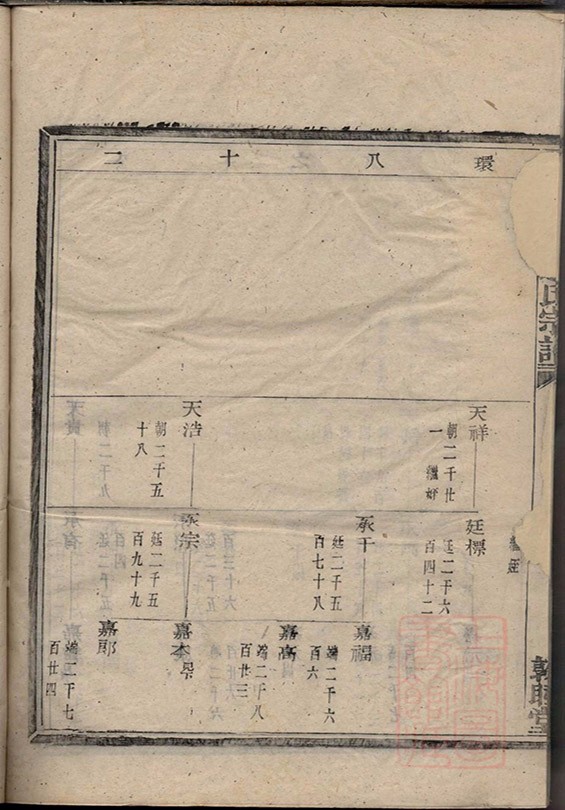 環八十二
氏宗譜
天祥
朝二千廿
一 繼好
廷標
廷二千六
百四十二
承干
廷二千五
百七十八
嘉福
端二千六
百六
嘉高
端二千八
百廿三
天浩
朝二千五
十八
承宗
廷二千五
百九十九
嘉本
嘉郎
端二千七
百廿四